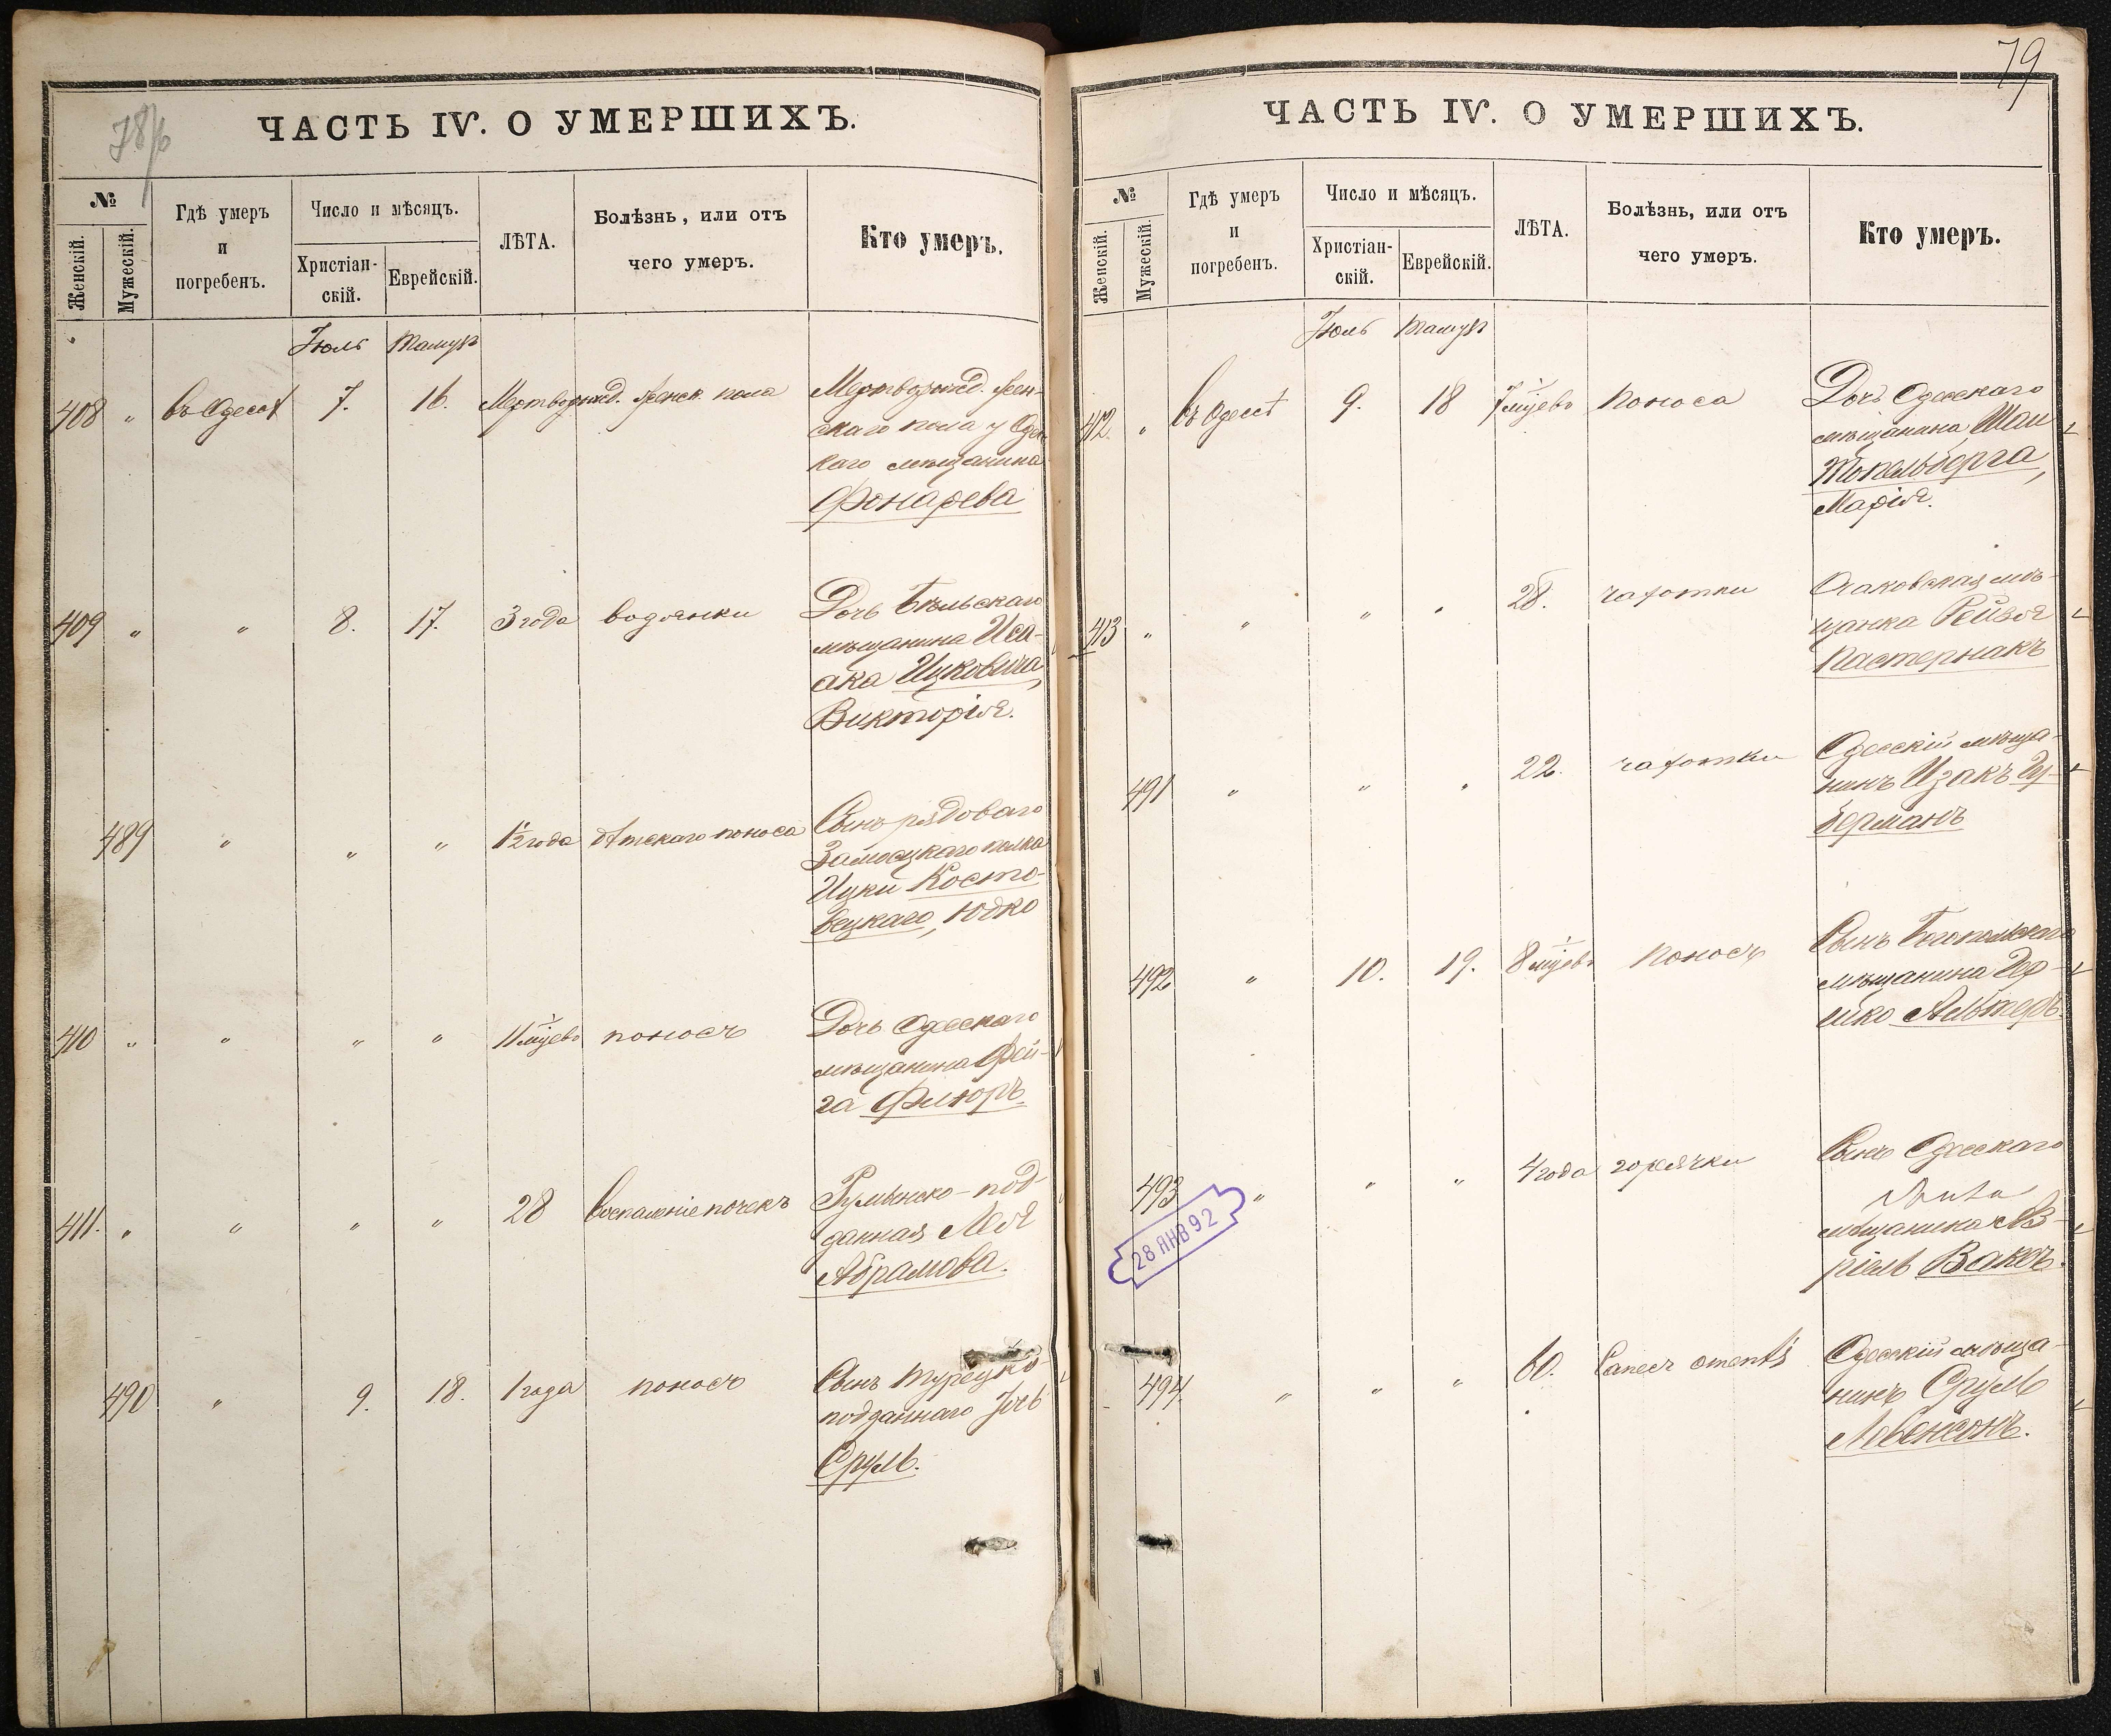 78/б
ЧАСТЬ IV. О УМЕРШИХЪ.
№
Женскій.
Мужескій.
Гдѣ умеръ
и
погребенъ.
Число и мѣсяцъ.
Христіан-
скій.
Еврейскій.
ЛѢТА.
Болѣзнь, или отъ
чего умеръ.
Кто умеръ.
Іюль Тамузъ
408 " въ Одессѣ 7. 16. Мертворожд. женск. пола Мертворожд. жен-
скаго пола у Одес
каго мѣщанина
Фонарева
409 " " 8. 17. 3 года водянки Дочь Бѣльскаго
мѣщанина Иса-
ака Ицковича,
Викторія.
489 " " " 1½ года дѣтскаго поноса Сынъ рядоваго
Замосцкаго полка
Ицки Косто-
вецкаго, Юдко
410 " " " " 11 мѣцевъ поносъ Дочь Одесскаго
мѣщанина Фей-
га Флюръ
411. " " " " 28 Воспаленіе почекъ Румынско-под-
данная Лея
Абрамова.
490 " 9. 18. 1 года поносъ Сынъ Турецко-
подданнаго
Сруль.
79
ЧАСТЬ IV. О УМЕРШИХЪ.
№
Женскій.
Мужескій.
Гдѣ умеръ
и
погребенъ.
Число и мѣсяцъ.
Христіан-
скій.
Еврейскій.
ЛѢТА.
Болѣзнь, или отъ
чего умеръ.
Кто умеръ.
Іюль Тамузъ
412. " въ Одессѣ 9. 18 7 мѣцевъ Поноса Дочь Одесскаго
мѣщанина
Топельберга,
Марія.
413 " " " " 28. чахотки Очаковская мѣ-
щанка Рейзя
Пастернакъ
491 " " " 22. чахотки Одесскій мѣща-
нинъ Изакъ Гу-
берманъ
492 " 10. 19. 8 мѣцевъ Поносъ Сынъ Богопольскаго
мѣщанина Гер-
шко Альтеръ.
493 " " " 4 года горячки Сынъ Одесскаго
мѣщанина Аз-
ріель Ваксъ.
28 ЯНВ 92
494. " " " 60. Cancer omenti Одесскій мѣща-
нинъ Сруль
Левенсонъ.